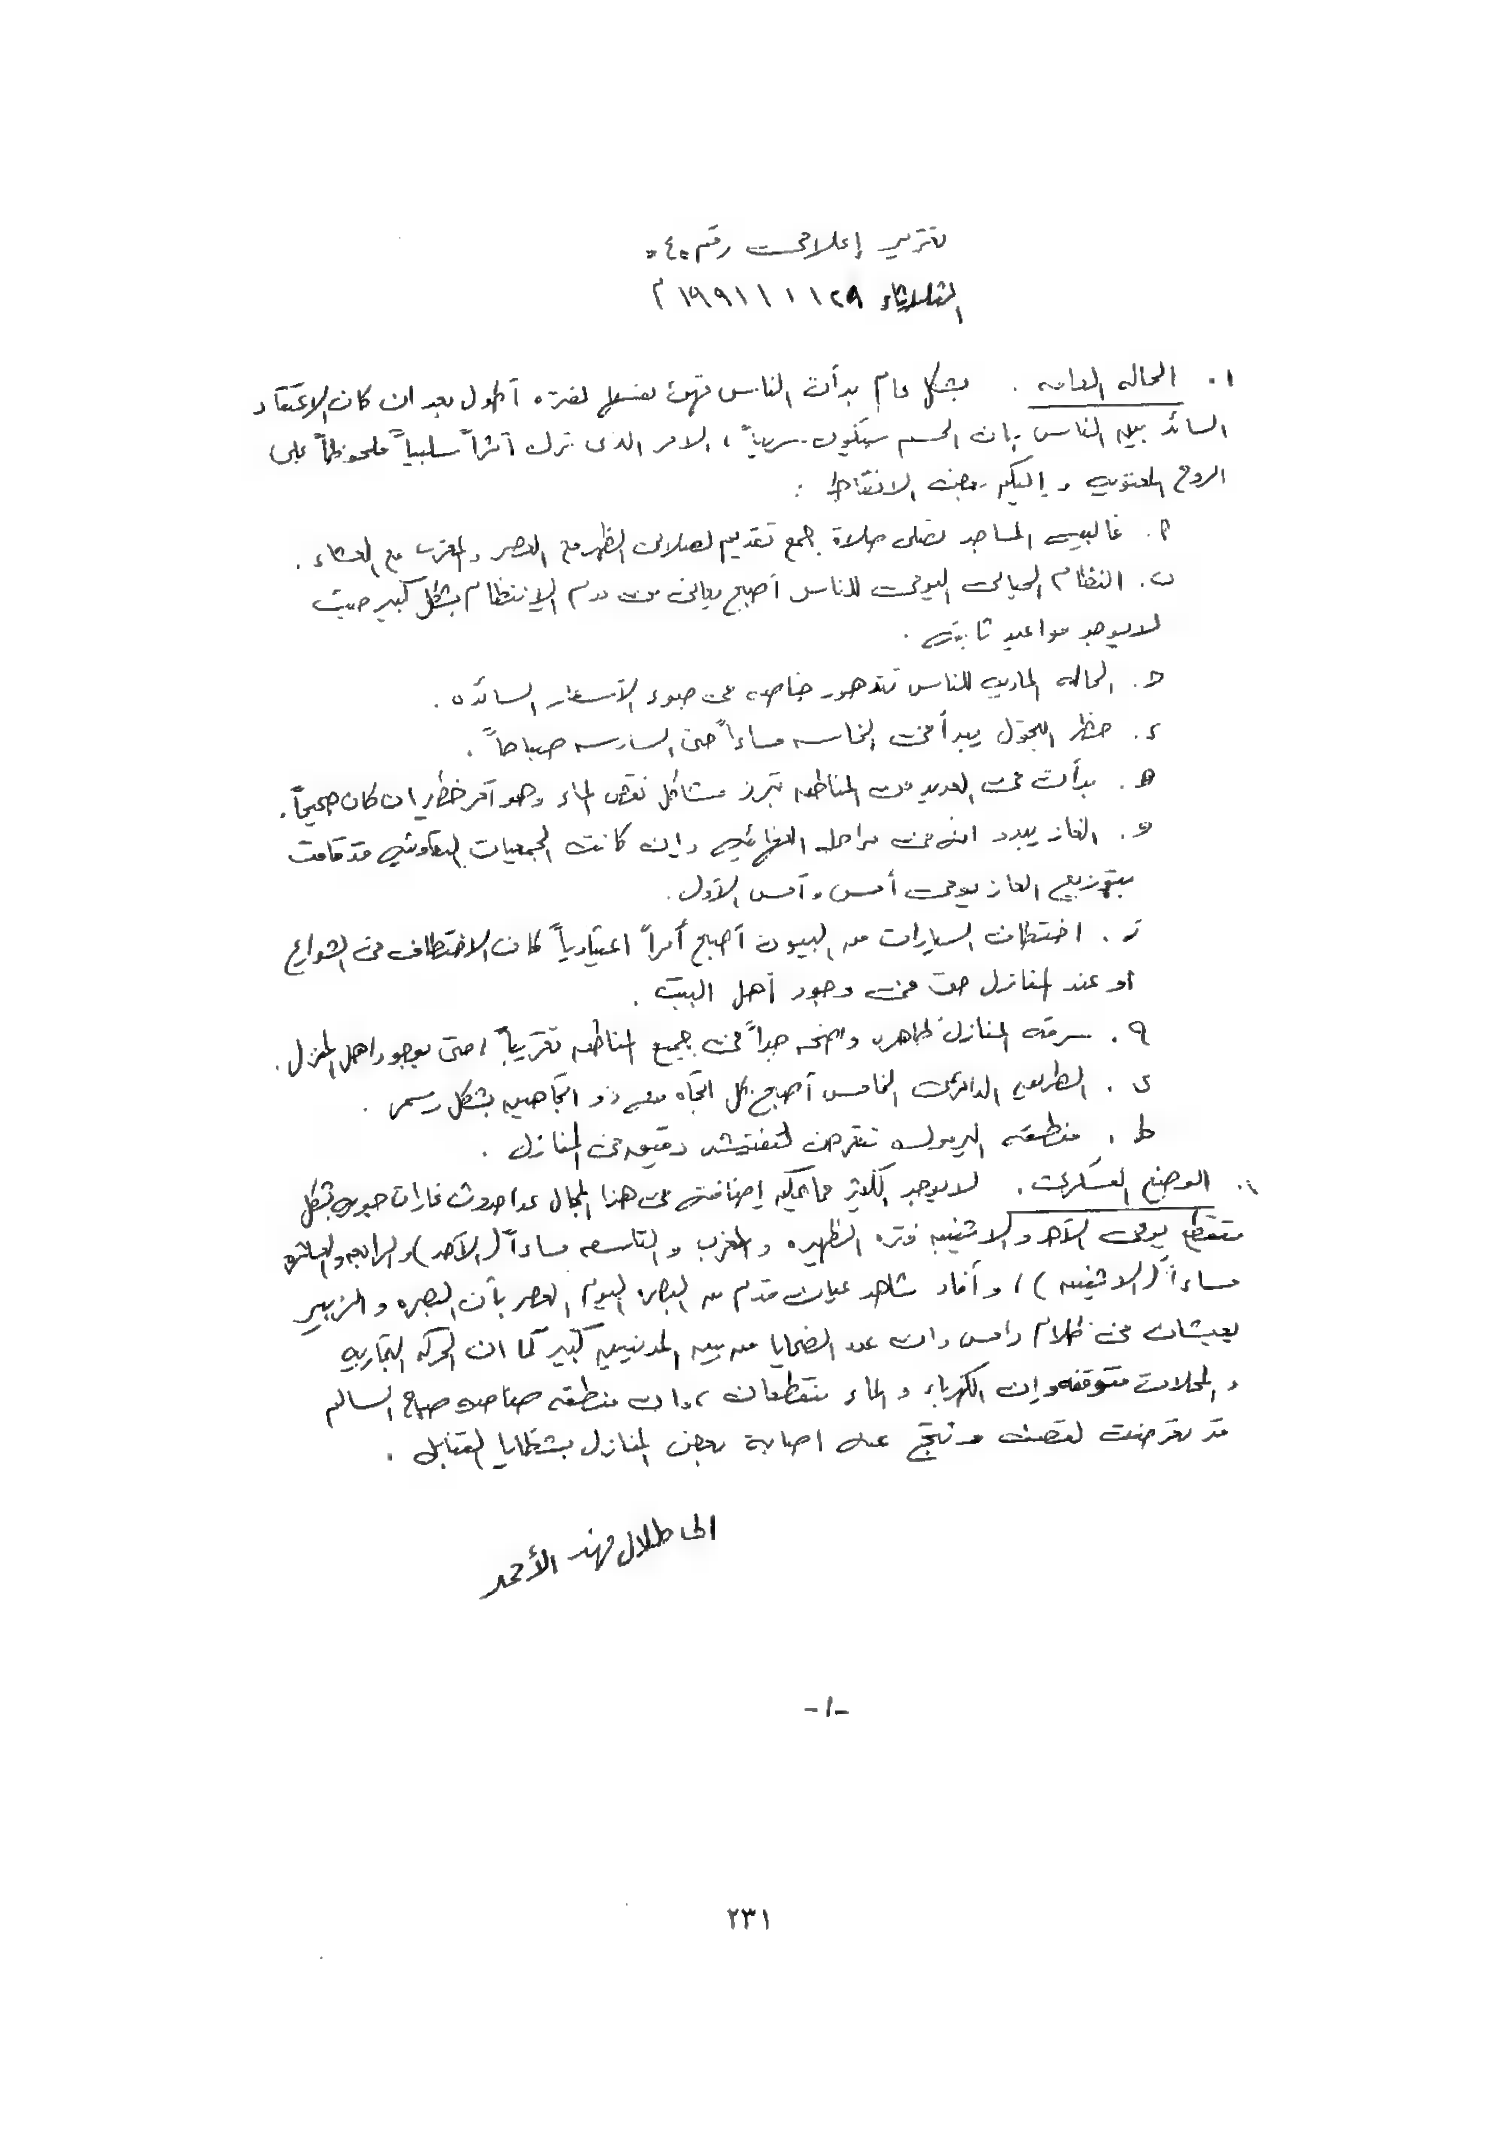 تقرير إعلامي رقم ٤٠
الثلاثاء ٢٩ / ١ / ١٩٩١ م
١. الحاله العامه . بشكل عام بدأت الناس تهيئ نفسها لفتره أطول بعد ان كان الاعتقاد
السائد بين الناس بان الحسم سيكون سريعاً ، الامر الذي ترك أثراً سلبياً ملحوظاً على
الروح المعنويه و إليكم بعض النقاط :
أ. غالبية المساجد تصلى صلاة جمع تقديم لصلاتي الظهر مع العصر والمغرب مع العشاء .
ب. النظام الحياتي اليومي للناس أصبح يعاني من عدم الإنتظام بشكل كبير حيث
لا يوجد مواعيد ثابته .
ج. الحاله الماديه للناس تتدهور خاصه في ضوء الأسعار السائده .
د. حظر التجول يبدأ في الخامسه مساءاً حتى السادسه صباحاً .
ه. بدأت في العديد من المناطق تبرز مشاكل نقص الماء وهو أمر خطير ان كان صحيحاً .
و. الغاز يبدو انه في مراحله النهائيه وإن كانت الجمعيات التعاونيه قد قامت
بتوزيع الغاز يومي أمس وأمس الأول .
ز. اختطاف السيارات من البيوت أصبح أمراً اعتيادياً كان الاختطاف في الشوارع
أو عند المنازل حتى في وجود أهل البيت .
ح. سرقة المنازل ظاهره واضحه جداً في جميع المناطق تقريباً ، حتى بوجود اهل المنزل .
ي. الطريق الدائري الخامس أصبح بكل اتجاه منه ذو اتجاهين بشكل رسمي .
ط. منطقة اليرموك تتعرض لتفتيش دقيق في المنازل .
٢. الوضع العسكري . لا يوجد الكثير مما يمكن إضافته في هذا المجال عدا حدوث غارات جويه بشكل
متقطع يومي الأحد والاثنين فترة الظهيره والمغرب والتاسعه مساءاً (الأحد) والرابعه والعاشره
مساءاً (الاثنين) ، وأفاد شاهد عيان قدم من البصره اليوم العصر بأن البصره والزبير
يعيشان في ظلام دامس وان عدد الضحايا من بين المدنيين كبير كما ان الحركه التجاريه
والمحلات متوقفه وإن الكهرباء والماء منقطعان ، وان منطقة ضاحية صباح السالم
قد تعرضت لقصف ونتج عنه اصابة بعض المنازل بشظايا القنابل .
الى طلال فهد الأحمد
-١-
٢٣١